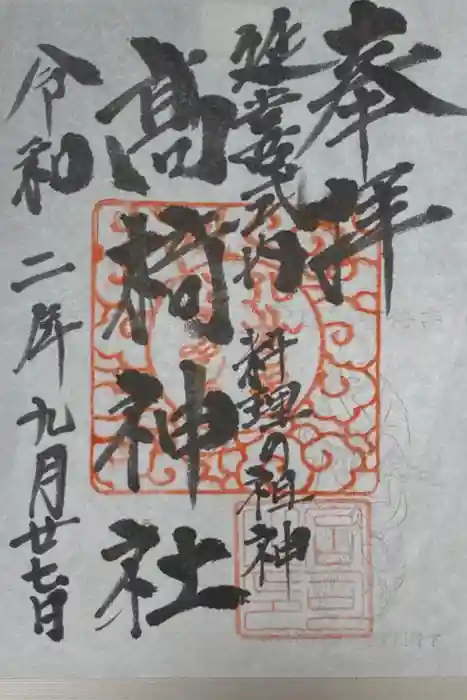 奉拝
延喜式内 料理の祖神
髙椅神社
令和二年九月廿七日